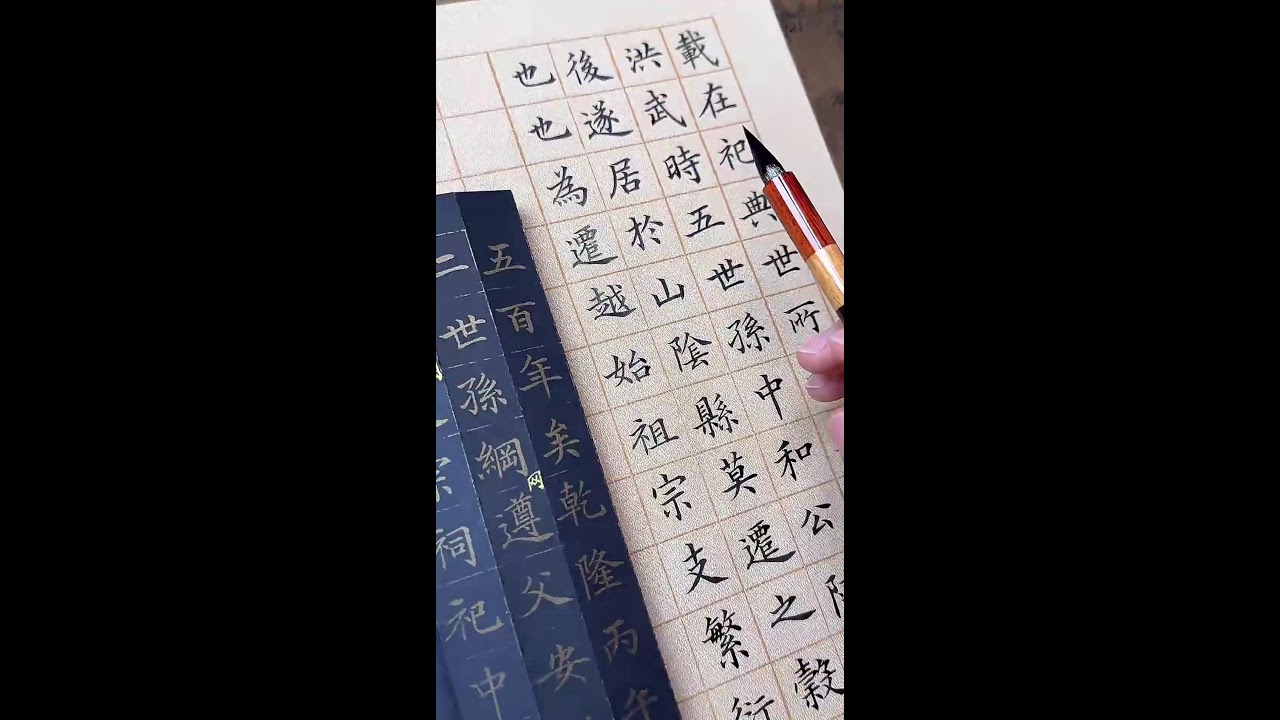 載在祀典世所
洪武時五世孫中和公
後遂居於山陰縣莫遷之穀
也也為遷越始祖宗支繁衍
五百年矣乾隆丙午
二世孫綱遵父安
宗祠祀中
网